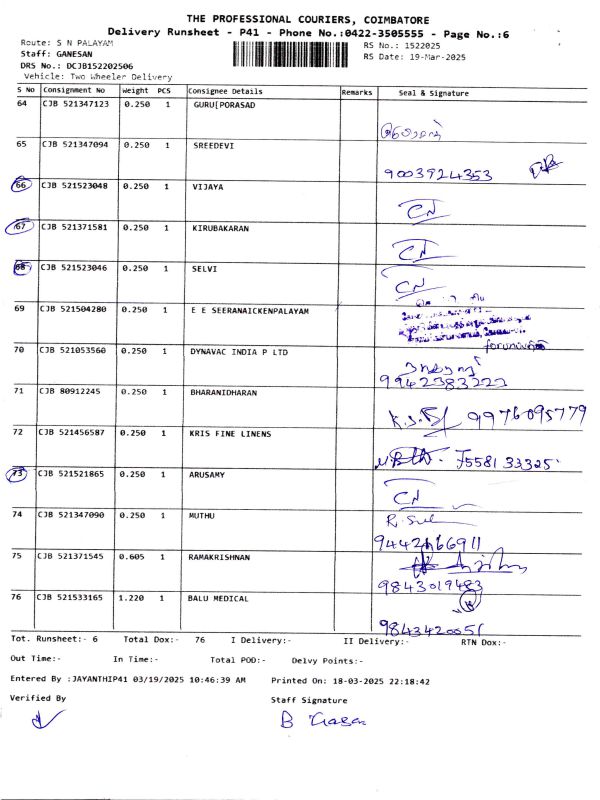 THE PROFESSIONAL COURIERS, COIMBATORE
Delivery Runsheet - P41 - Phone No.:0422-3505555 - Page No.:6
Route: S N PALAYAM RS No.: 1522025
Staff: GANESAN RS Date: 19-Mar-2025
DRS No.: DCJB152202506
Vehicle: Two Wheeler Delivery
S No Consignment No Weight PCS Consignee Details Remarks Seal & Signature
64 CJB 521347123 0.250 1 GURU[PORASAD
65 CJB 521347094 0.250 1 SREEDEVI
9003924353
66 CJB 521523048 0.250 1 VIJAYA
CN
67 CJB 521371581 0.250 1 KIRUBAKARAN
CN
68 CJB 521523046 0.250 1 SELVI
CN
69 CJB 521504280 0.250 1 E E SEERANAICKENPALAYAM
70 CJB 521053560 0.250 1 DYNAVAC INDIA P LTD
9942383222
71 CJB 80912245 0.250 1 BHARANIDHARAN
9976095779
72 CJB 521456587 0.250 1 KRIS FINE LINENS
73 CJB 521521865 0.250 1 ARUSAMY
CN
74 CJB 521347090 0.250 1 MUTHU
75 CJB 521371545 0.605 1 RAMAKRISHNAN
9843019483
76 CJB 521533165 1.220 1 BALU MEDICAL
9843420051
Tot. Runsheet:- 6 Total Dox:- 76 I Delivery:- II Delivery:- RTN Dox:-
Out Time:- In Time:- Total POD:- Delvy Points:-
Entered By :JAYANTHIP41 03/19/2025 10:46:39 AM Printed On: 18-03-2025 22:18:42
Verified By Staff Signature